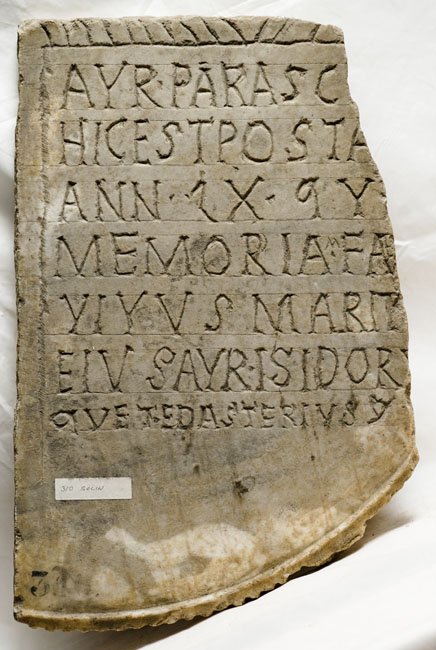 AVR·PARASC
HIC EST POSTA
ANN·LX·QV
MEMORIA·FA
VIVVS MARIT
EIVS AVR·ISIDORV
QVE T·ED ASTERIVS V
310 SOLIN